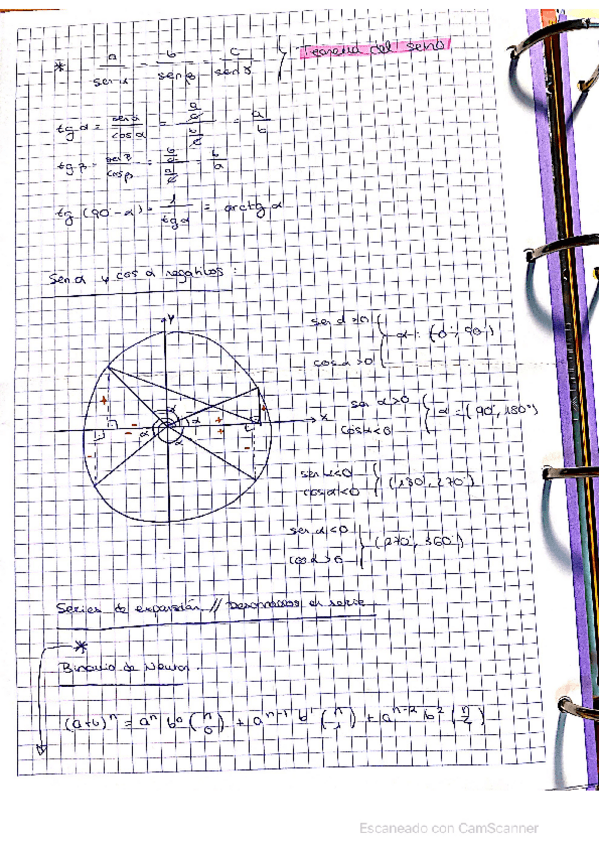 * a/sen α = b/sen β = c/sen γ } Teorema del seno
tg α = sen α/cos α = (a/c)/(b/c) = a/b
tg β = sen β/cos β = (b/c)/(a/c) = b/a
tg (90 - α) = 1/tg α = arctg α
Sen α y cos α negativos:
y
x
α α α α
+ - + + + - -
sen α > 0
cos α > 0 } α = (0°, 90°)
sen α > 0
cos α < 0 } α = (90°, 180°)
sen α < 0
cos α < 0 } (180°, 270°)
sen α < 0
cos α > 0 } (270°, 360°)
Series de expansión // Desarrollos en serie
*
Binomio de Newton.
(a+b)ⁿ = aⁿ b⁰ (n 0) + aⁿ⁻¹ b¹ (n 1) + aⁿ⁻² b² (n 2)
Escaneado con CamScanner